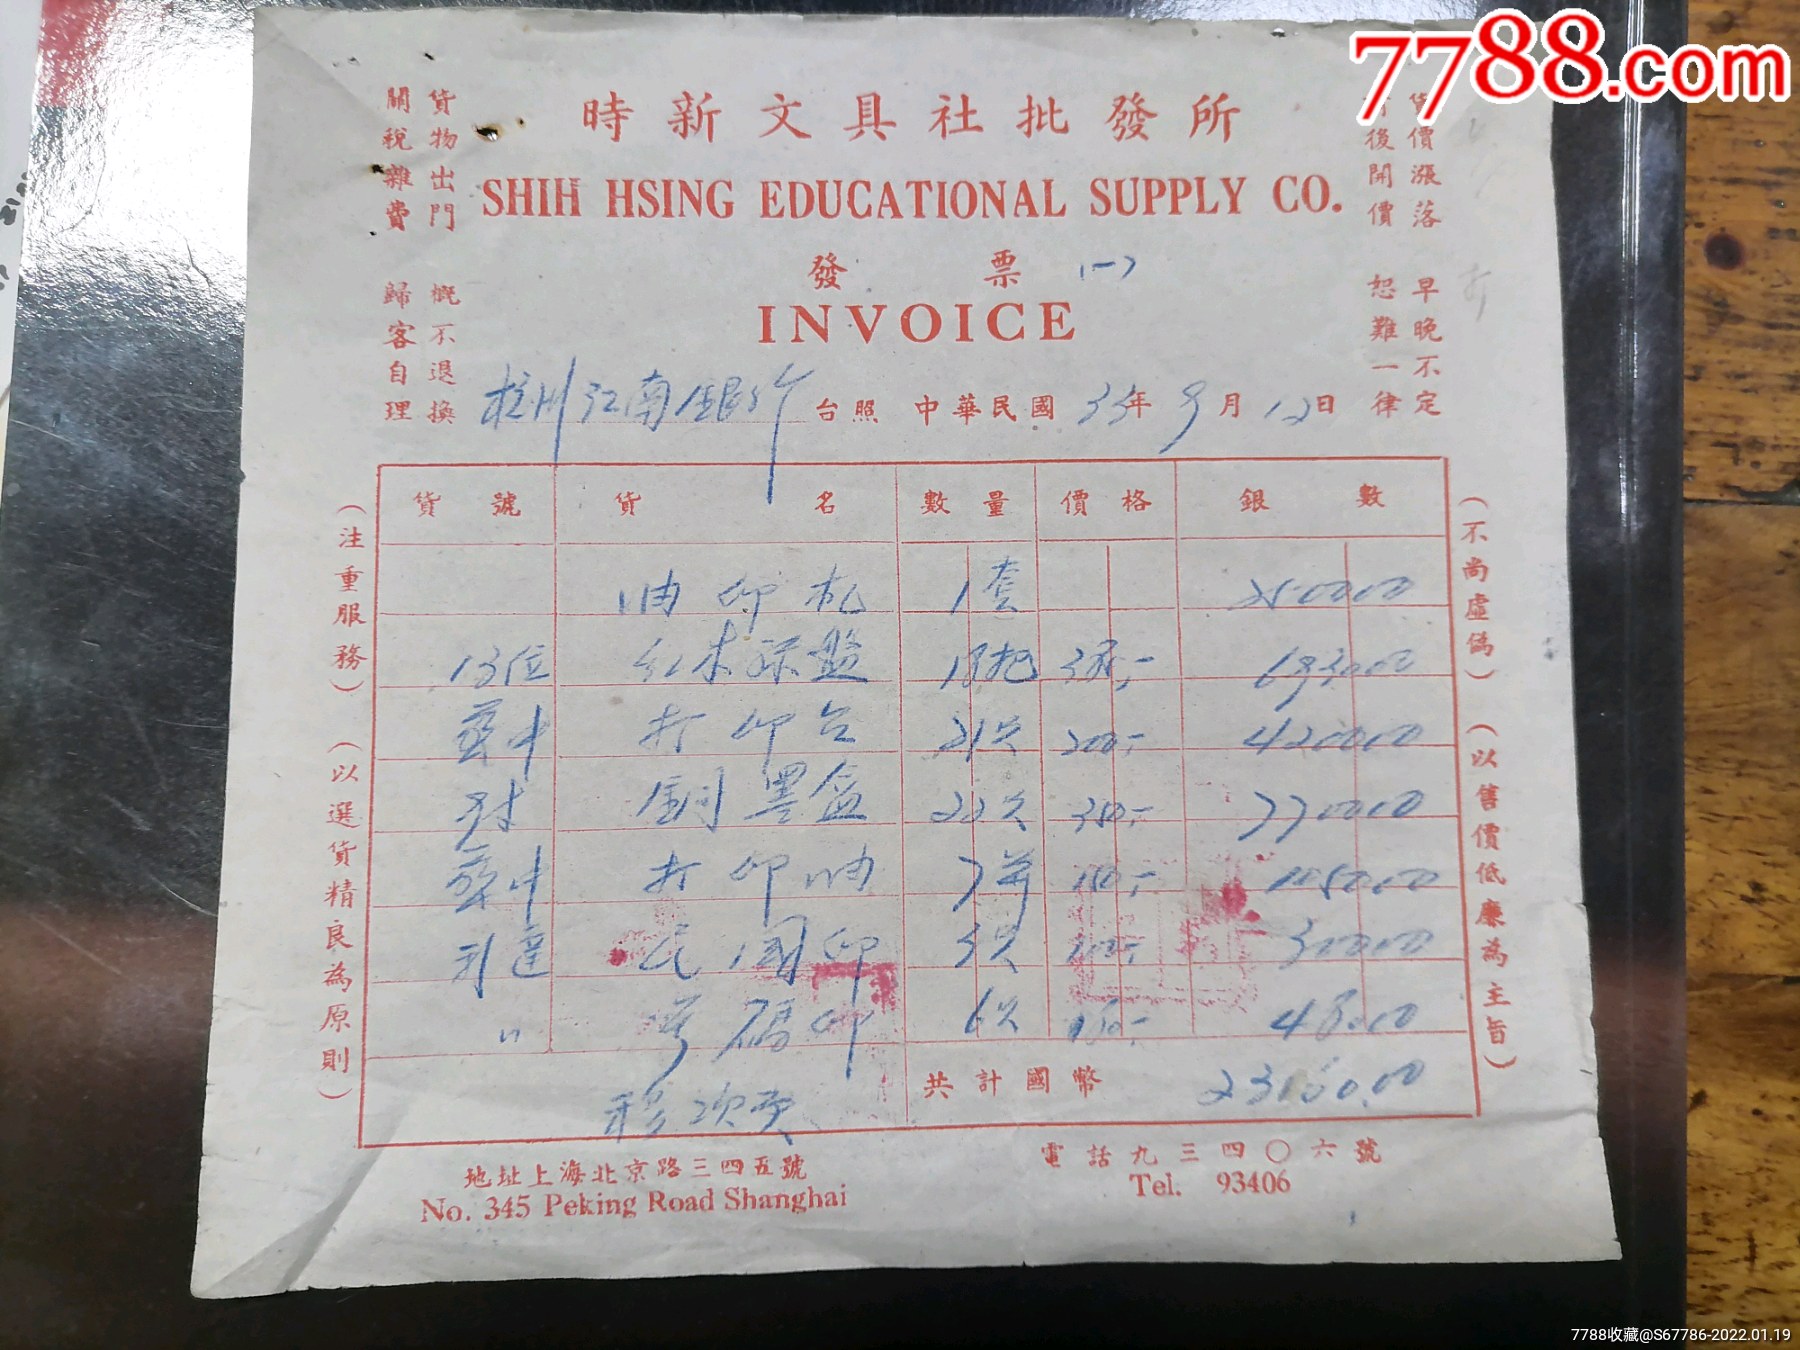 7788.com
時新文具社批發所
SHIH HSING EDUCATIONAL SUPPLY CO.
貨物出門 概不退換
關稅雜費 歸客自理
貨價漲落 早晚不定
後開價 恕難一律
發票 (一)
INVOICE
杭州江南銀行 台照 中華民國35年9月12日
貨號 貨名 數量 價格 銀數
油印机 1套 2500.00
13位 紅木算盤 18把 385.- 6930.00
打印台 21只 200.- 4200.00
銅墨盒 22只 350.- 7700.00
打印油 7并 150.- 1050.00
利達 民國印 3只 100.- 300.00
〃 号碼印 6只 480.00
共計國幣 23160.00
(注重服務)
(以選貨精良為原則)
(不尚虛偽)
(以售價低廉為主旨)
地址上海北京路三四五號
No. 345 Peking Road Shanghai
電話九三四〇六號
Tel. 93406
7788收藏@S67786-2022.01.19